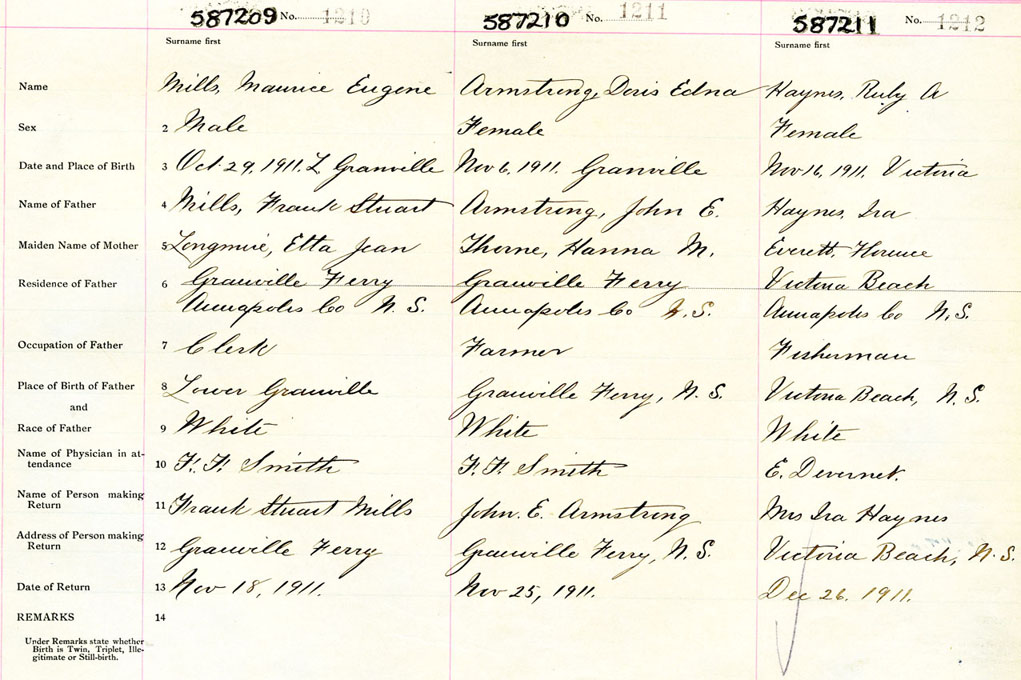 587209 No. 1210 587210 No. 1211 587211 No. 1212
Surname first Surname first Surname first
Name Mills, Maurice Eugene Armstrong, Doris Edna Haynes, Ruby A
Sex 2 Male Female Female
Date and Place of Birth 3 Oct. 29, 1911. L Granville Nov 6, 1911. Granville Nov 16, 1911. Victoria
Name of Father 4 Mills, Frank Stuart Armstrong, John E. Haynes, Ira
Maiden Name of Mother 5 Longmire, Etta Jean Thorne, Hanna M. Everett, Florence
Residence of Father 6 Granville Ferry Granville Ferry Victoria Beach
Annapolis Co N. S. Annapolis Co N. S. Annapolis Co N. S.
Occupation of Father 7 Clerk Farmer Fisherman
Place of Birth of Father 8 Lower Granville Granville Ferry, N. S. Victoria Beach, N. S.
and
Race of Father 9 White White White
Name of Physician in at-
tendance 10 F. F. Smith F. F. Smith E. Devernet.
Name of Person making
Return 11 Frank Stuart Mills John. E. Armstrong Mrs Ira Haynes
Address of Person making
Return 12 Granville Ferry Granville Ferry, N. S. Victoria Beach, N. S.
Date of Return 13 Nov 18, 1911. Nov 25, 1911. Dec 26. 1911.
REMARKS 14
Under Remarks state whether
Birth is Twin, Triplet, Ille-
gitimate or Still-birth.